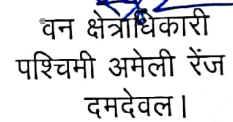 वन क्षेत्राधिकारी
पश्चिमी अमेली रेंज
दमदेवल।